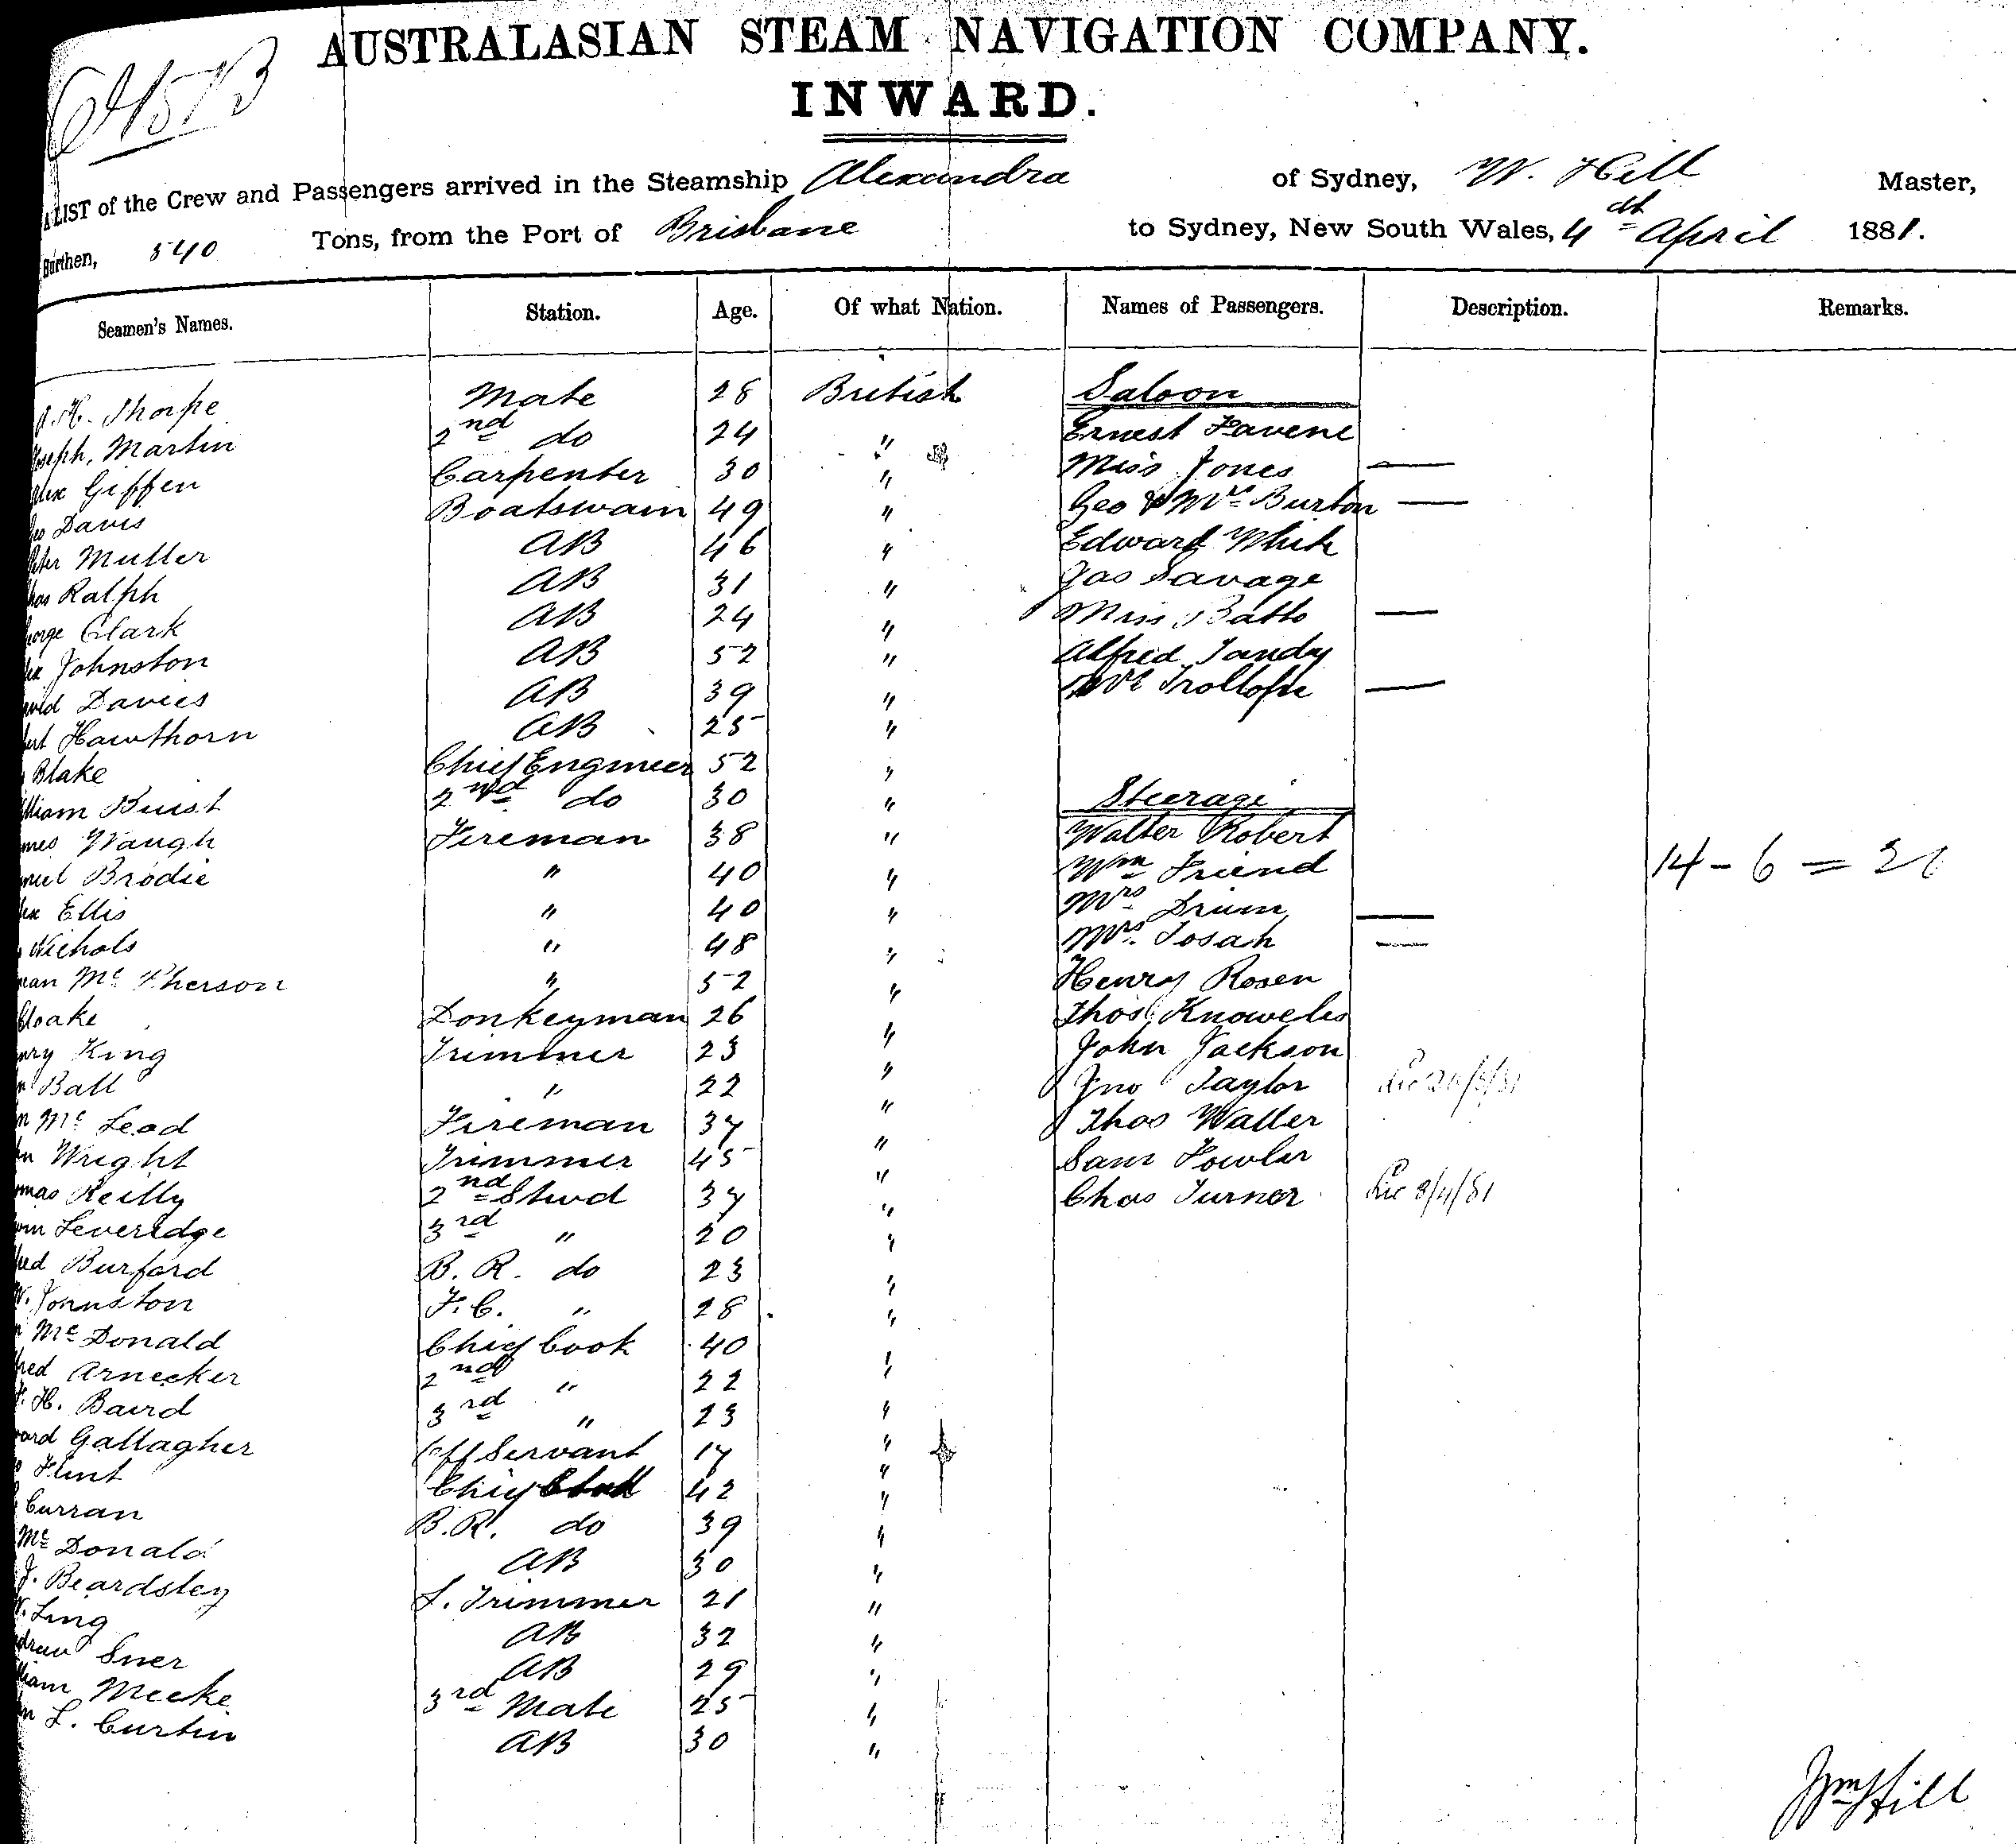 AUSTRALASIAN STEAM NAVIGATION COMPANY.
INWARD.
LIST of the Crew and Passengers arrived in the Steamship Alexandra of Sydney, W. Hill Master,
Burthen, 540 Tons, from the Port of Brisbane to Sydney, New South Wales, 4th April 1881.
Seamen's Names. Station. Age. Of what Nation. Names of Passengers. Description. Remarks.
H. Thorpe Mate 28 British Saloon
Joseph, Martin 2nd do 24 " Ernest Favene
Alex Giffen Carpenter 30 " Miss Jones —
Geo Davis Boatswain 49 " Geo & Mrs Burton —
Peter Muller AB 46 " Edward White
Ralph AB 31 " Jas Savage
George Clark AB 24 " Miss Batto —
Alex Johnston AB 52 " Alfred Tandy
David Davies AB 39 " Mrs Trollope —
Hawthorn AB 25 "
Blake Chief Engineer 52 "
William Buist 2nd do 30 " Steerage
James Waugh Fireman 38 " Walter Robert
Brodie " 40 " Wm Friend 14 - 6 = 2
Alex Ellis " 40 " Mrs Drum —
Nichols " 48 " Mrs Tosah —
Mc Pherson " 52 " Henry Rosen
Cloake Donkeyman 26 " Thos Knoweles
Henry King Trimmer 23 " John Jackson
Ball " 22 " Jno Taylor
Mc Leod Fireman 37 " Thos Waller
Wright Trimmer 45 " Sam Fowler
Thomas Reilly 2nd Stwd 37 " Chas Turner
Leveridge 3rd " 20 "
Burford B. R. do 23 "
W. Johnston F. C. " 28 "
Mc Donald Chief Cook 40 "
Arnecker 2nd " 22 "
H. Baird 3rd " 23 "
Gallagher Off Servant 17 "
Flint Chief 42 "
Curran B.R. do 39 "
Mc Donald AB 30 "
J. Beardsley S. Trimmer 21 "
W. Ling AB 32 "
Andrew Sner AB 29 "
William Meeke 3rd Mate 25 "
L. Curtin AB 30 "
Wm Hill